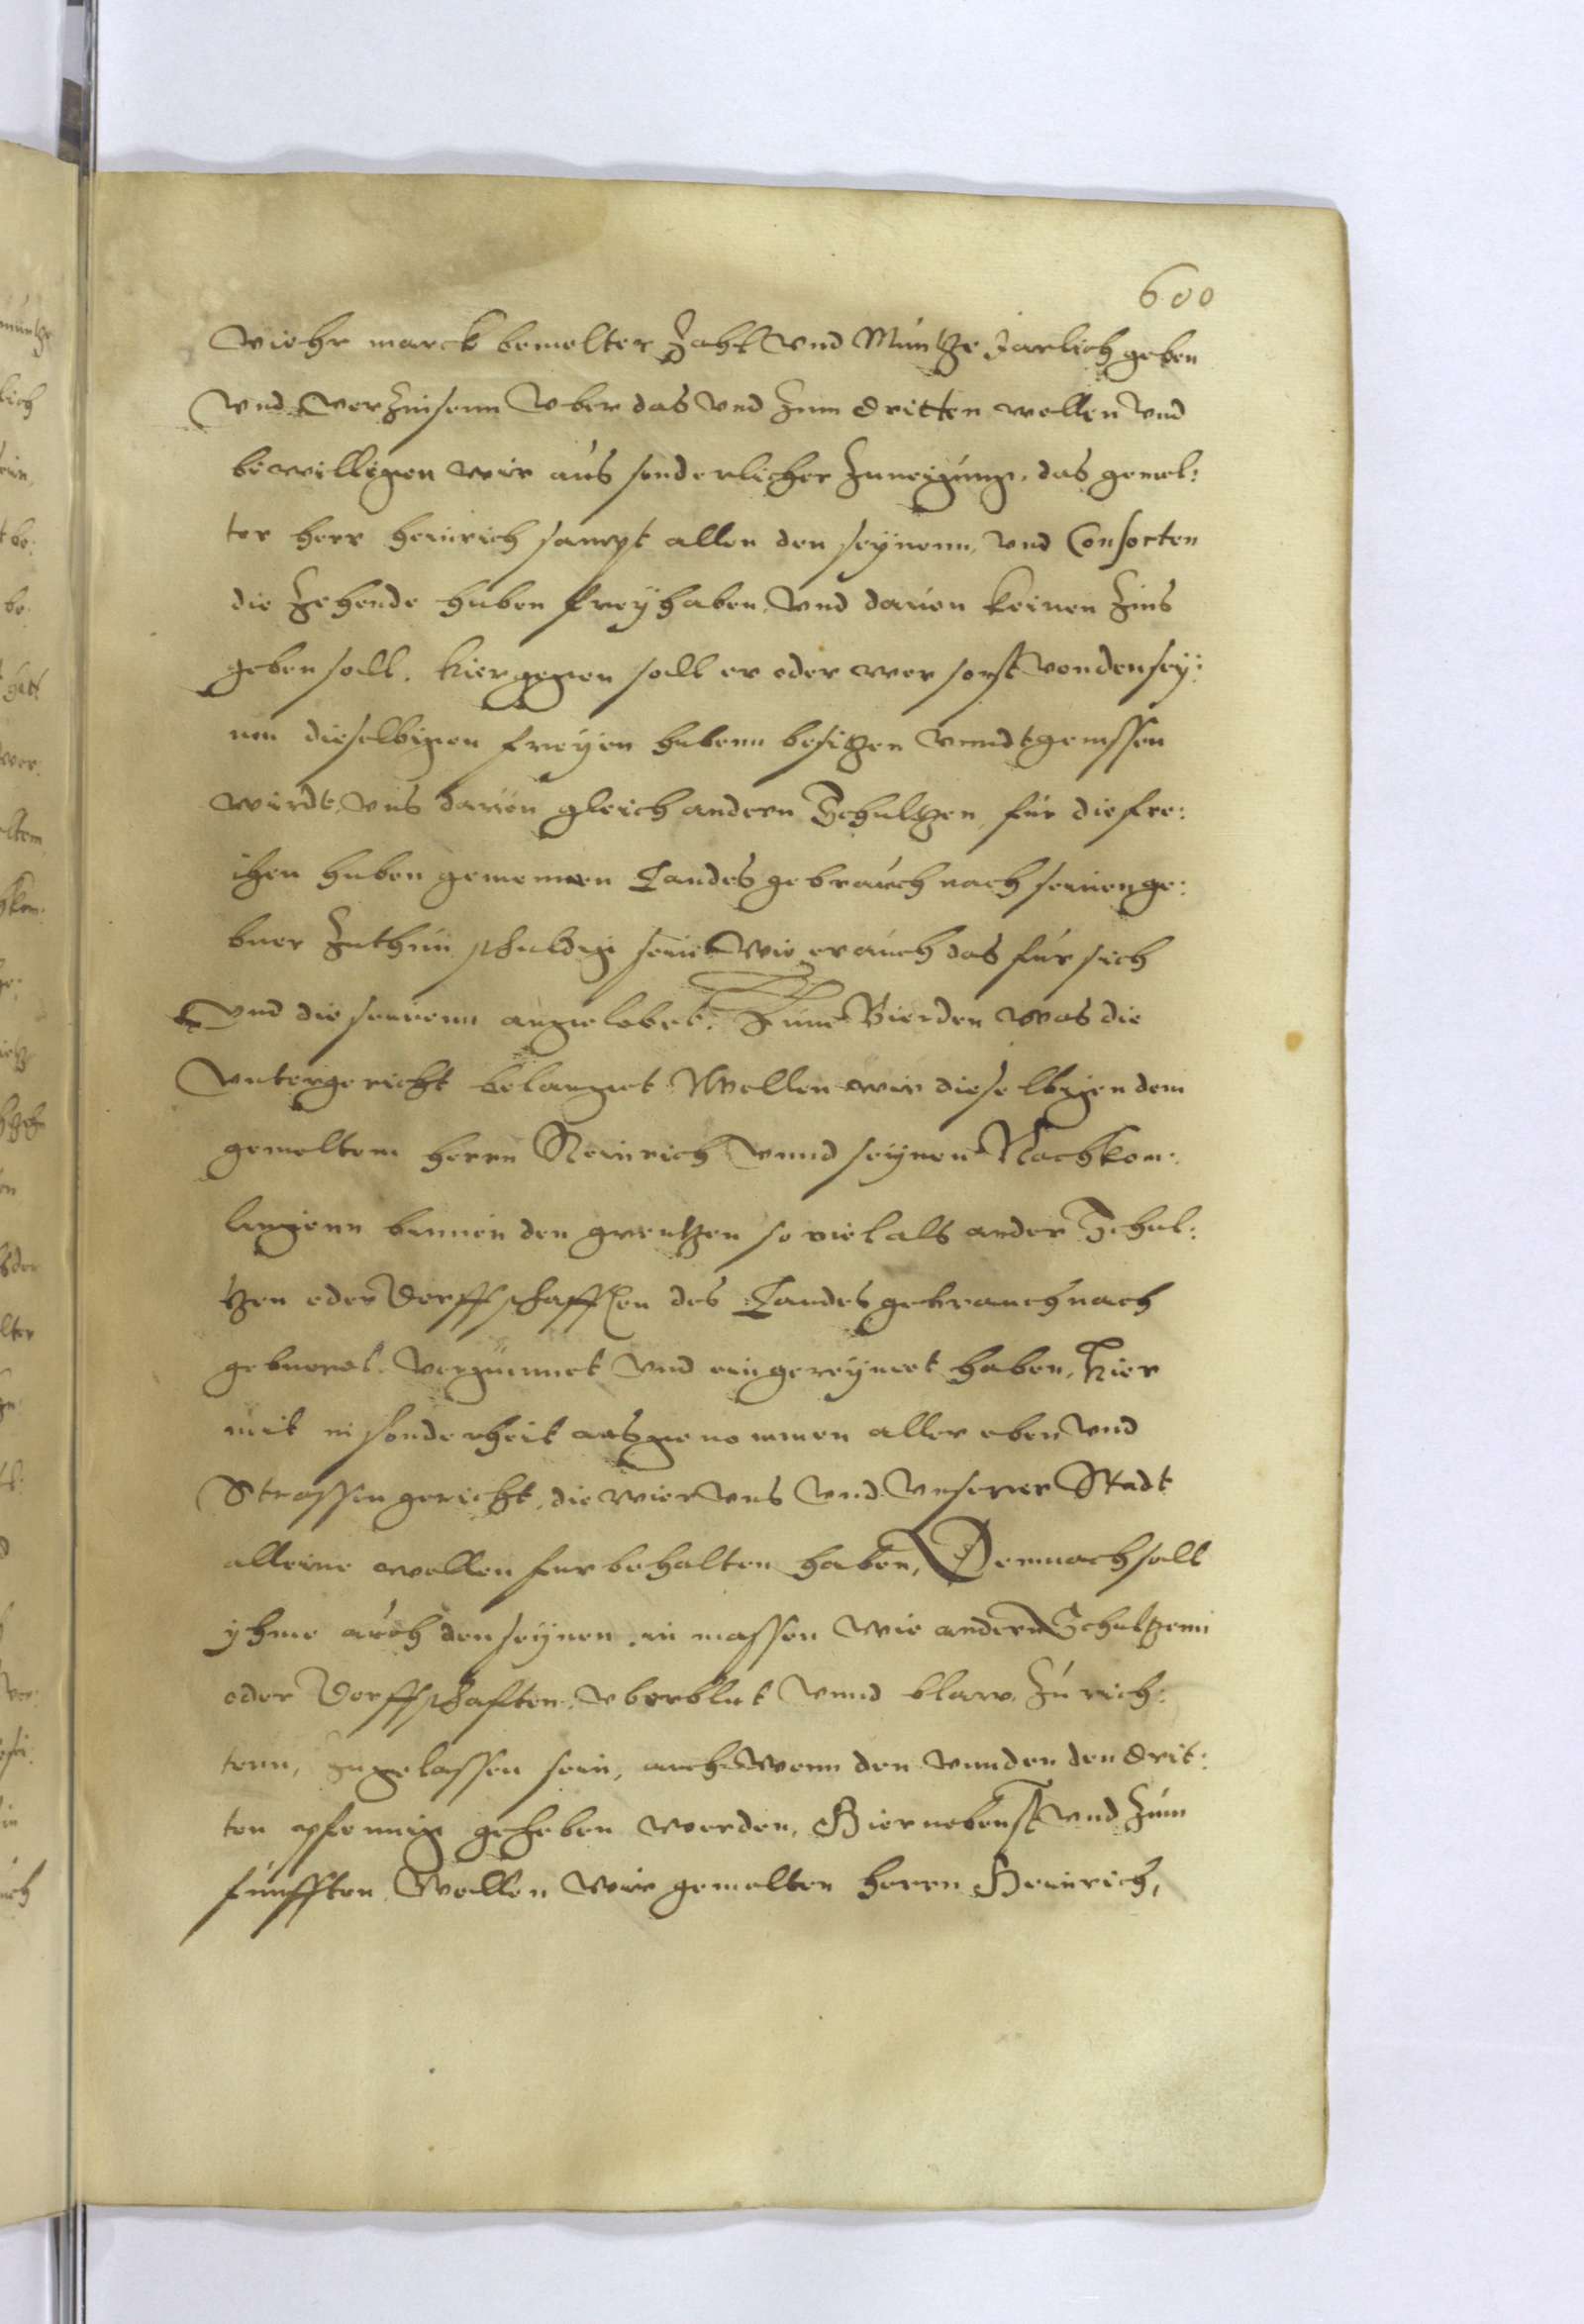 600
viehr marck bemolter Zahl vnd Müntze Jarlich geben
vnd verzinsenn Vber das vnd zum dritten wollen vnd
bewilligen wir aus sonderlicher Zuneigung, das gemel:
ter herr Heinrich sampt allen den seynenn, vnd Consorten
die Zehende huben frey haben vnd dauon keinen Zins
geben soll. hiergegen soll er oder wer sonst von den sey:
nen dieselbigen freyen hubenn besitzen vnndt genissen
wirdt, vns dauon gleich andern Schultzen für die fre:
ihen huben gemeinen Landes gebrauch nach seinen ge:
buer Zuthun schuldig sein wie er auch das für sich
vnd die seinenn angelobet. Zum Vierden was die
Vntergericht belanget Wollen wir dieselbigen dem
gemeltem herrn Heinrich vnnd seynen Nachkom:
lingenn binnen den grentzen so viel als ander Schul:
tzen oder Dorffschafften des Landes gebrauch nach
vergünnet vnd eingereymet haben, Hier
mit in sonderheit ausgenommen aller vnd
Strassengericht, die wier vns vnd vnserer Stadt
alleine wollen furbehalten haben, Demnach soll
yhme auch den seynen, in massen wie andern Schultzenn
oder Dorffschafften, vber blut vnnd blaw, Zu rich:
tenn, zugelassen sein, auch wenn den wunden den drit:
ten pfennig geheben werden, Hiernebenst vnd Zum
fünfften Wollen wir gemelten herrn Heinrich,